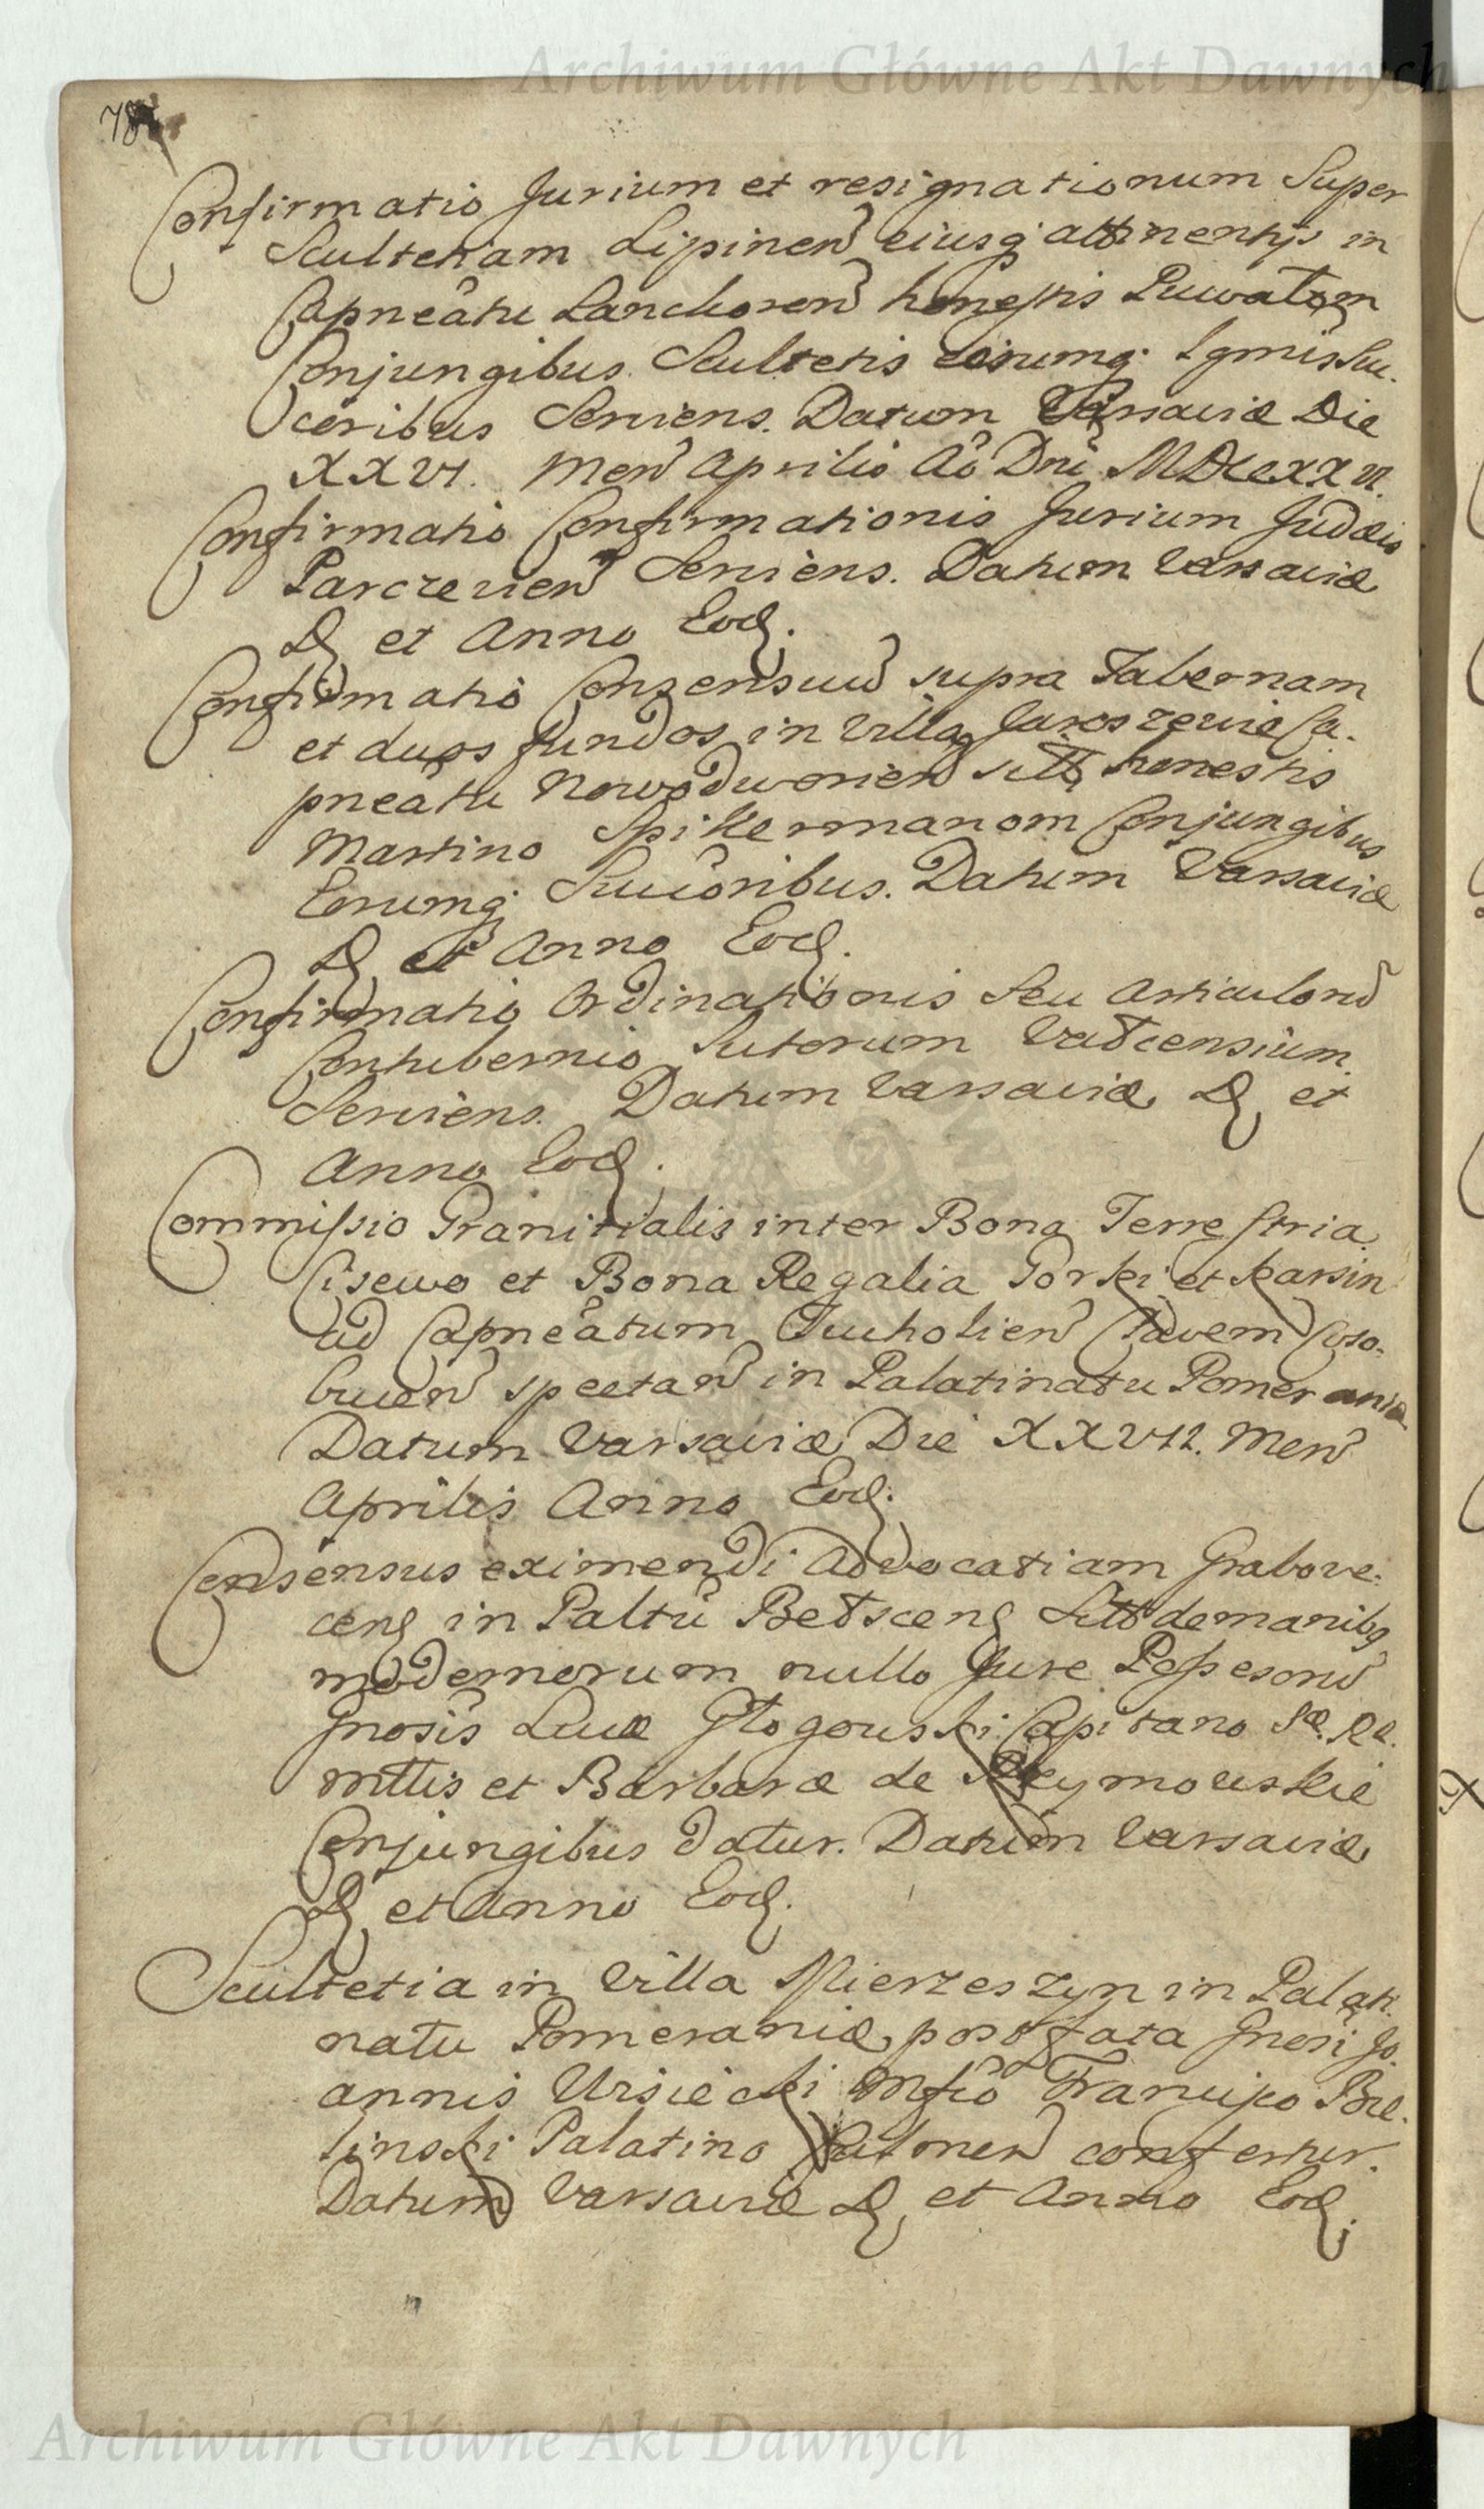 Archiwum Główne Akt Dawnych
78
Confirmatio Jurium et resignationum Super
Scultetiam Lipinen eiusq attinentijs in
Capneatu Lanckoren honestis
Conjungibus Scultetis eorumq Lgmis Suc.
ceribus Serviens. Datum Varsaviæ Die
XXVI. Men Aprilis Ao Dni MDCCXXVI.
Confirmatio Confirmationis Jurium Judæis
Parczevien Serviens. Datum Varsaviæ
D et Anno Eod.
Confirmatio Consensuu supra Tabernam
et duos fundos in Villa Jaroszewie Ca.
pneatu Nowodworien sitt honestis
Martino Spikermanom Conjungibus
Eorumq Succoribus. Datum Varsaviæ
D et Anno Eod.
Confirmatio Ordinationis Seu Articulorū
Contubernio Sutorum Vadcensium
Serviens. Datum Varsaviæ D et
Anno Eod.
Commissio Granitialis inter Bona Terrestria
Cisewo et Bona Regalia Gorki et Karsin
ad Capneatum Tucholien Clavem Coso.
buen spectan in Palatinatu Pomeraniæ
Datum Varsaviæ Die XXVII. Men
Aprilis Anno Eod.
Consensus eximendi Advocatiam Grabove.
cens in Paltu Betsceng Sitt de manibq
modernorum nullo Jure Possesorū
Gnosis Lucæ Głogouski Capitano Sæ. Ræ.
Mttis et Barbaræ de
Conjungibus datur. Datum Varsaviæ
D et Anno Eod.
Scultetia in Villa Mierzeszyn in Palati.
natu Pomeraniæ post fata Gnosi Jo.
annis Ursiecki Mfico Francisco Bie.
linski Palatino Culmen confertur.
Datum Varsaviæ D et Anno Eod.
Archiwum Główne Akt Dawnych